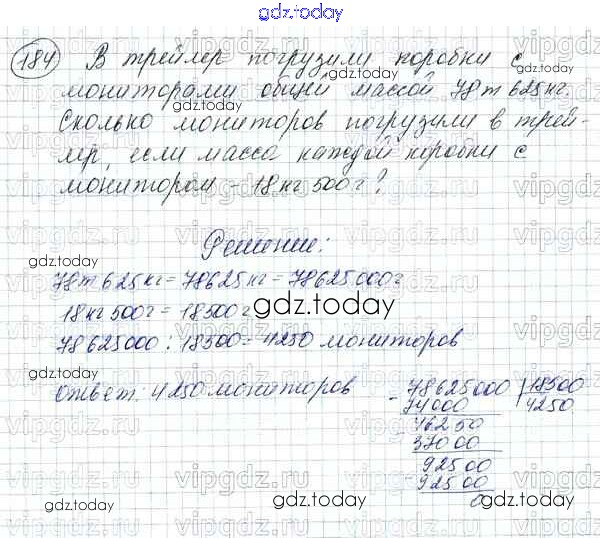 gdz.today
184 В трейлер погрузили коробки с
мониторами общей массой 78т 625кг.
Сколько мониторов погрузили в трей-
лер, если масса каждой коробки с
монитором - 18кг 500г?
Решение:
78т 625кг = 78625кг = 78625000г
18кг 500г = 18500г
78625000 : 18500 = 4250 мониторов
Ответ: 4250 мониторов
- 78625000 | 18500
74000 4250
46250
37000
92500
- 92500
0
gdz.today
gdz.today
gdz.today
gdz.today
gdz.today
gdz.today
gdz.today
gdz.today
gdz.today
gdz.today
gdz.today
vipgdz.ru
vipgdz.ru
vipgdz.ru